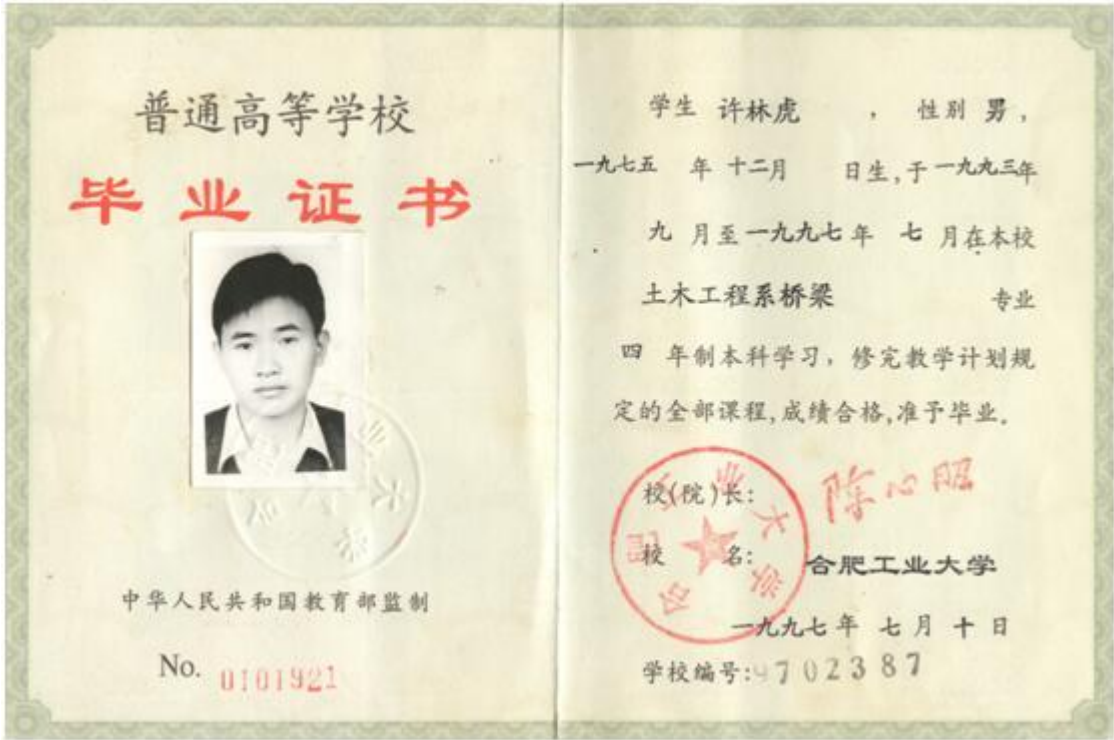 普通高等学校
毕业证书
中华人民共和国教育部监制
No. 0101921
学生 许林虎 , 性别 男,
一九七五 年 十二月 日生,于一九九三年
九 月至一九九七年 七 月在本校
土木工程系桥梁 专业
四 年制本科学习, 修完教学计划规
定的全部课程,成绩合格,准予毕业.
校(院)长: 陈心昭
校 名: 合肥工业大学
合肥工业大学
一九九七年 七月 十日
学校编号:9702387